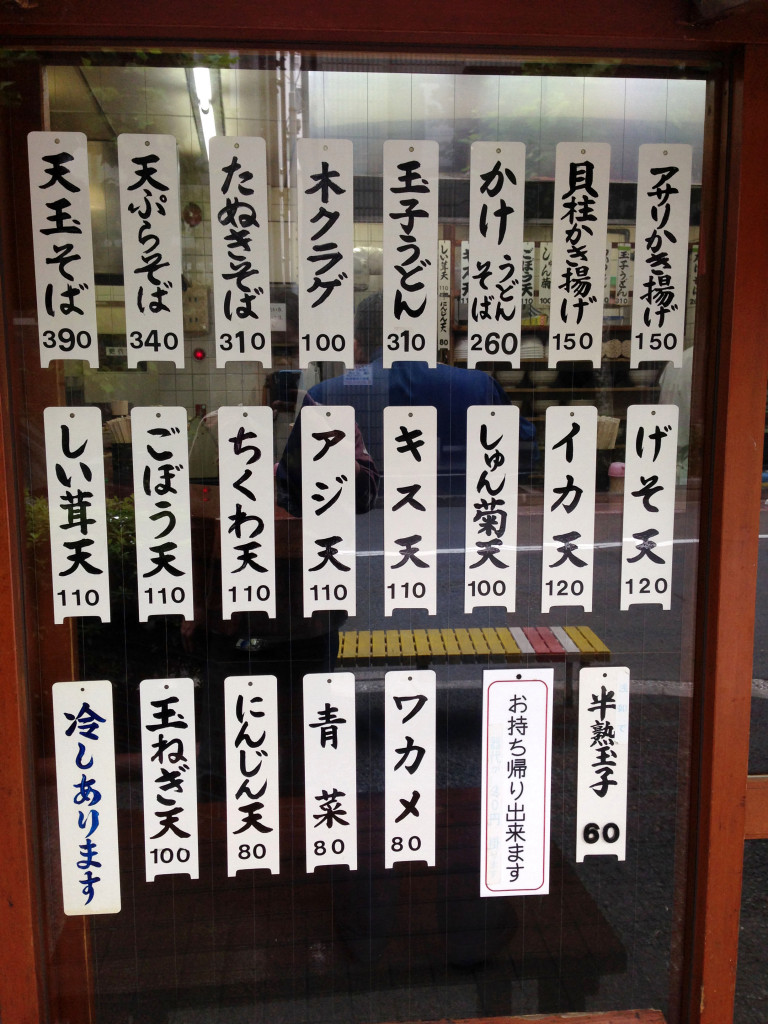 アサリかき揚げ
150
貝柱かき揚げ
150
かけ うどん そば
260
玉子うどん
310
木クラゲ
100
たぬきそば
310
天ぷらそば
340
天玉そば
390
げそ天
120
イカ天
120
しゅん菊天
100
キス天
110
アジ天
110
ちくわ天
110
ごぼう天
110
しい茸天
110
半熟玉子
60
お持ち帰り出来ます
ワカメ
80
青菜
80
にんじん天
80
玉ねぎ天
100
冷しあります